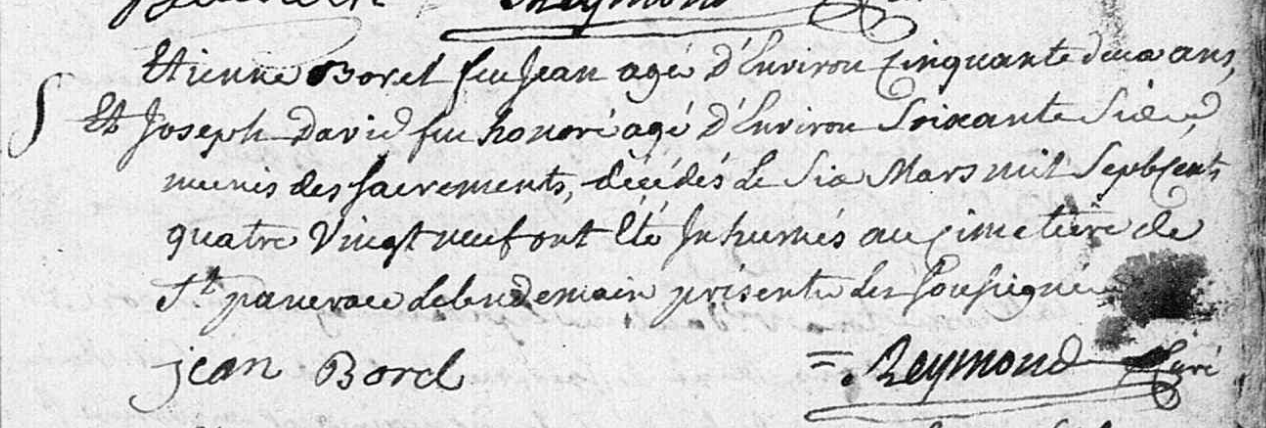 Reymond
Etienne Borel feu Jean agé d'Environ Cinquante deux ans,
S Et Joseph David feu honoré agé d'Environ Soixante Six,
munis des sacrements, décédés le Six Mars mil Sept Cent
quatre Vingt neuf ont Eté Inhumés au Cimetière de
St pancrace le lendemain présents les soussignés
jean Borel = Reymond Curé